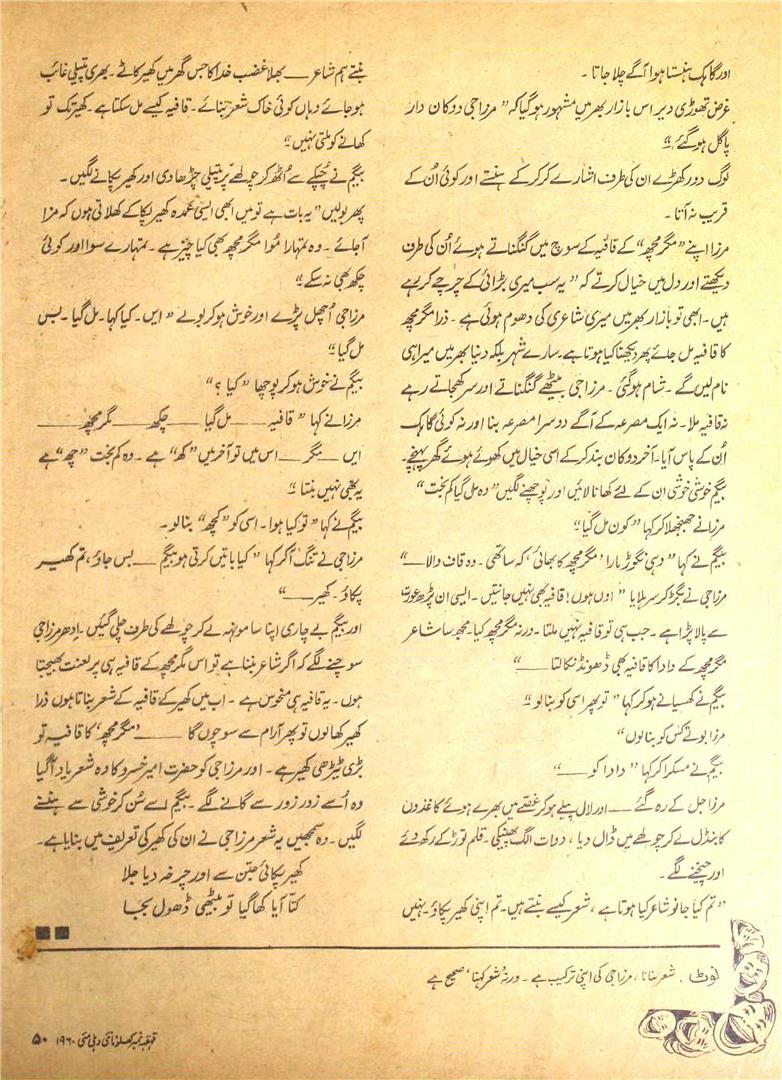 اور گاہک ہنستا ہوا آگے چلا جاتا ۔
غرض تھوڑی دیر اس بازار بھر میں مشہور ہو گیا کہ ” مرزا جی دوکان دار
پاگل ہو گئے “
لوگ دور کھڑے ان کی طرف اشارے کر کر کے ہنستے اور کوئی اُن کے
قریب نہ آتا ۔
مرزا اپنے ” مگرمچھ “ کے قافیہ کے سوچ میں گنگناتے ہوئے اُن کی طرف
دیکھتے اور دل میں خیال کرتے کہ ” یہ سب میری بڑائی کے چرچے کر رہے
ہیں ۔ ابھی تو بازار بھر میں میری شاعری کی دھوم ہوئی ہے ۔ ذرا مگرمچھ
کا قافیہ مل جائے پھر دیکھنا کیا ہوتا ہے ۔ سارے شہر بلکہ دنیا بھر میں میرا ہی
نام لیں گے ۔ شام ہو گئی ۔ مرزا جی بیٹھے گنگناتے اور سر کھجاتے رہے
نہ قافیہ ملا ۔ نہ ایک مصرعہ کے آگے دوسرا مصرعہ بنا اور نہ کوئی گاہک
اُن کے پاس آیا ۔ آخر دوکان بند کر کے اسی خیال میں کھوئے ہوئے گھر پہنچے ۔
بیگم خوشی خوشی ان کے لئے کھانا لائیں اور پوچھنے لگیں ” وہ مل گیا کم بخت “
مرزا نے جھنجھلا کر کہا ” کون مل گیا “
بیگم نے کہا ” وہی نگوڑ مارا ’ مگرمچھ کا بھائی ‘ کہ ساتھی ۔ وہ قاف والا — “
مرزا جی نے بگڑ کر سر ہلایا ” اوں ہوں ! قافیہ بھی نہیں جانتیں ۔ ایسی ان پڑھ عورت
سے پالا پڑا ہے ۔ جب ہی تو قافیہ نہیں ملتا ۔ ورنہ مگرمچھ کیا ۔ مجھ سا شاعر
مگرمچھ کے دادا کا قافیہ بھی ڈھونڈ نکالتا — “
بیگم نے کھسیانے ہو کر کہا ” تو پھر اسی کو بنا لو “
مرزا بولے کس کو بنا لوں “
بیگم نے مسکرا کر کہا ” دادا کو — “
مرزا جل کے رہ گئے — اور لال پیلے ہو کر غصّے میں بھرے ہوئے کاغذوں
کا بنڈل لے کر چولھے میں ڈال دیا ، دوات الگ پھینکی ۔ قلم توڑ کے رکھ دئے
اور چیخنے لگے ۔
” تم کیا جانو شاعر کیا ہوتا ہے ، شعر کیسے بنتے ہیں ۔ تم اپنی کھیر پکاؤ ۔ نہیں
بنتے ہم شاعر — بھلا غضب خدا کا جس گھر میں کھیر کاٹے ۔ بھری پتیلی غائب
ہو جائے وہاں کوئی خاک شعر بنائے ۔ قافیہ کیسے مل سکتا ہے ۔ کھیر تک تو
کھانے کو ملتی نہیں “
بیگم نے چُپکے سے اُٹھ کر چولھے پر پتیلی چڑھا دی اور کھیر پکانے لگیں ۔
پھر بولیں ” یہ بات ہے تو میں ابھی ایسی عمدہ کھیر پکا کے کھلاتی ہوں کہ مزا
آ جائے ۔ وہ تمہارا مُوا مگرمچھ بھی کیا چیز ہے ۔ تمہارے سوا اور کوئی
چکھ بھی نہ سکے “
مرزا جی اُچھل پڑے اور خوش ہو کر بولے ” ایں ۔ کیا کہا ۔ مل گیا ۔ بس
مل گیا “
بیگم نے خوش ہو کر پوچھا ” کیا ؟ “
مرزا نے کہا ” قافیہ — مل گیا — چکھ — مگرمچھ —
ایں — مگر — اس میں تو آخر میں ” کھ “ ہے ۔ وہ کم بخت ” چھ “ ہے
یہ بھی نہیں بنتا “
بیگم نے کہا ” تو کیا ہوا ۔ اسی کو ” کچھ “ بنا لو ۔
مرزا جی نے تنگ آ کر کہا ” کیا باتیں کرتی ہو بیگم — بس جاؤ ، تم کھیر
پکاؤ ۔ کھیر — “
اور بیگم بے چاری اپنا سا مونہہ لے کر چولھے کی طرف چلی گئیں ۔ اِدھر مرزا جی
سوچنے لگے کہ اگر شاعر بننا ہے تو اس مگرمچھ کے قافیہ ہی پر لعنت بھیجتا
ہوں ۔ یہ قافیہ ہی منحوس ہے ۔ اب میں کھیر کے قافیہ کے شعر بناتا ہوں ذرا
کھیر کھا لوں تو پھر آرام سے سوچوں گا — ’ مگرمچھ ‘ کا قافیہ تو
بڑی ٹیڑھی کھیر ہے ۔ اور مرزا جی کو حضرت امیر خسرو کا وہ شعر یاد آ گیا
وہ اُسے زور زور سے گانے لگے ۔ بیگم اسے سُن کر خوشی سے ہنسنے
لگیں ۔ وہ سمجھیں یہ شعر مرزا جی نے ان کی کھیر کی تعریف میں بنایا ہے ۔
کھیر پکائی جتن سے اور چرخہ دیا جلا
کتّا آیا کھا گیا تو بیٹھی ڈھول بجا
نوٹ . شعر بنانا ، مرزا جی کی اپنی ترکیب ہے ۔ ورنہ شعر کہنا ’ صحیح ہے
قہقہہ نمبر کھلونا نئی دہلی مئی ۱۹۶۰ ۵۰